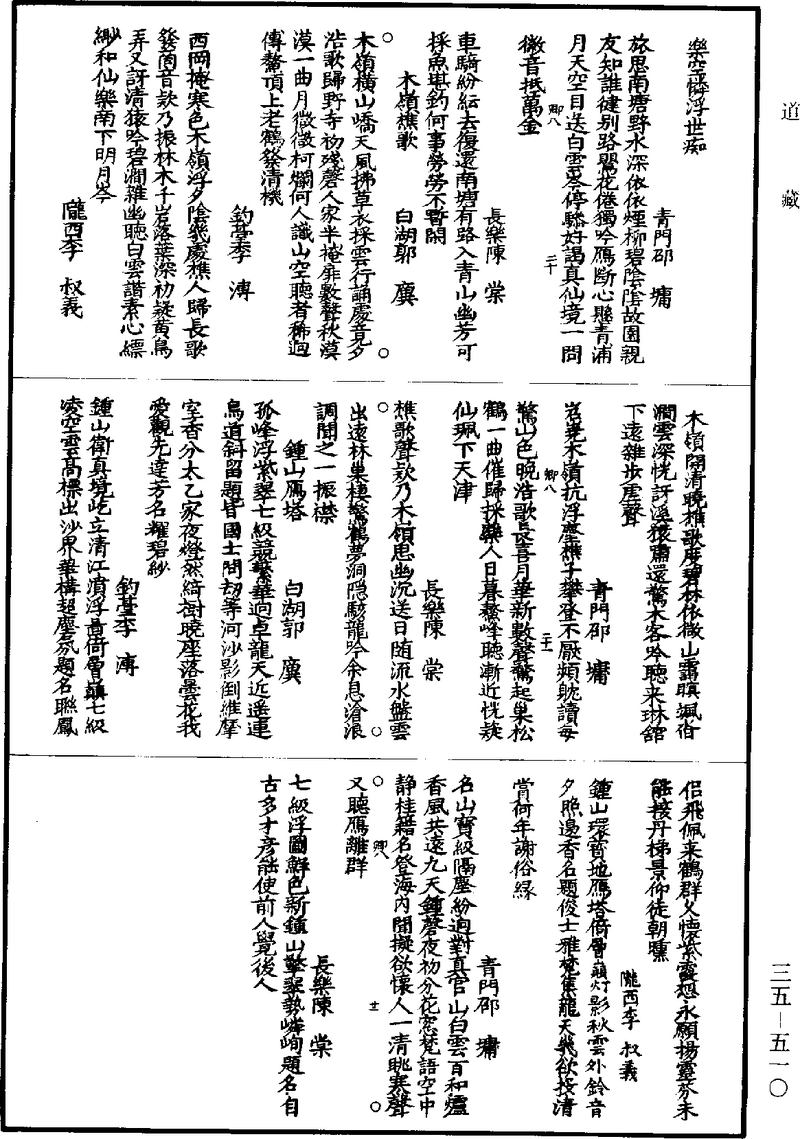 道藏
樂空憐浮世痴
青門邵 墉
旅思南塘野水深依依煙柳碧陰陰故園親
友知誰健别路鶯花倦獨吟鴈斷心懸青浦
月天空目送白雲岑停驂好謁真仙境一問
徽音抵萬金
長樂陳 棠
車騎紛紜去復還南塘有路入青山幽芳可
採魚堪釣何事勞勞不暫閑
木嶺樵歌 白湖郭 廙
木嶺橫山嶠天風拂草衣採雲行誦處音夕
浩歌歸野寺初殘磬人家半掩扉數聲秋漠
漠一曲月微微柯爛何人識山空聽者稀迴
傳鰲頂上老鶴發清機
釣臺李 溥
西岡掩寒色木嶺浮夕陰幾處樵人歸長歌
發茵音欸乃振林木千岩落葉深初疑黄鳥
弄又訝清猿吟碧澗雜幽聽白雲諧素心縹
緲和仙樂南下明月岑
隴西李 叔義
木嶺開清曉樵歌度碧林依微山靄暝颯沓
澗雲深恍訝溪猿肅還驚木客吟聽来琳舘
下遠雜步虚聲
青門邵 墉
岧嶤木嶺抗浮塵樵子攀登不厭頻眈讀每
驚山色晚浩歌長喜月華新數聲驚起巢松
鶴一曲催歸採藥人日暮鰲峰聽漸近恍疑
仙珮下天津
長樂陳 棠
樵歌聲欸乃木嶺思幽沉送日随流水盤雲
出遠林巢棲驚鶴夢洞隱駭龍吟余息滄浪
調聞之一振襟
鍾山鴈塔 白湖郭 廙
孤峰浮紫翠七級競繁華迥卓龍天近遥連
鳥道斜留題皆國士問劫等河沙影倒維摩
室香分太乙家夜燈然綺樹曉座落曇花我
愛觀先達芳名耀碧紗
釣臺李 溥
鍾山衛真境屹立清江濆浮圖倚層巔七級
凌空雲髙標出沙界華構超塵氛題名聯鳳
侣飛佩来鶴群乂懷紫霞想永願揚靈芬未
能接丹梯景仰徒朝曛
隴西李 叔義
鍾山環寳地鴈塔倚層巔灯影秋雲外鈴音
夕照邊香名題俊士雅梵集龍天幾欲投清
賞何年謝俗緣
青門邵 墉
名山寳級隔塵紛迥對真官山白雲百和爐
香風共遠九天鍾磬夜初分花窓梵語空中
静桂籍名登海内聞擬欲懷人一清眺寒聲
又聽鴈離群
長樂陳 棠
七級浮圖鮮色新鍾山擎翠勢嶙峋題名自
古多才彦能使前人覺後人
卿八 二十
卿八 二十一
卿八 廿二
三五—五一〇